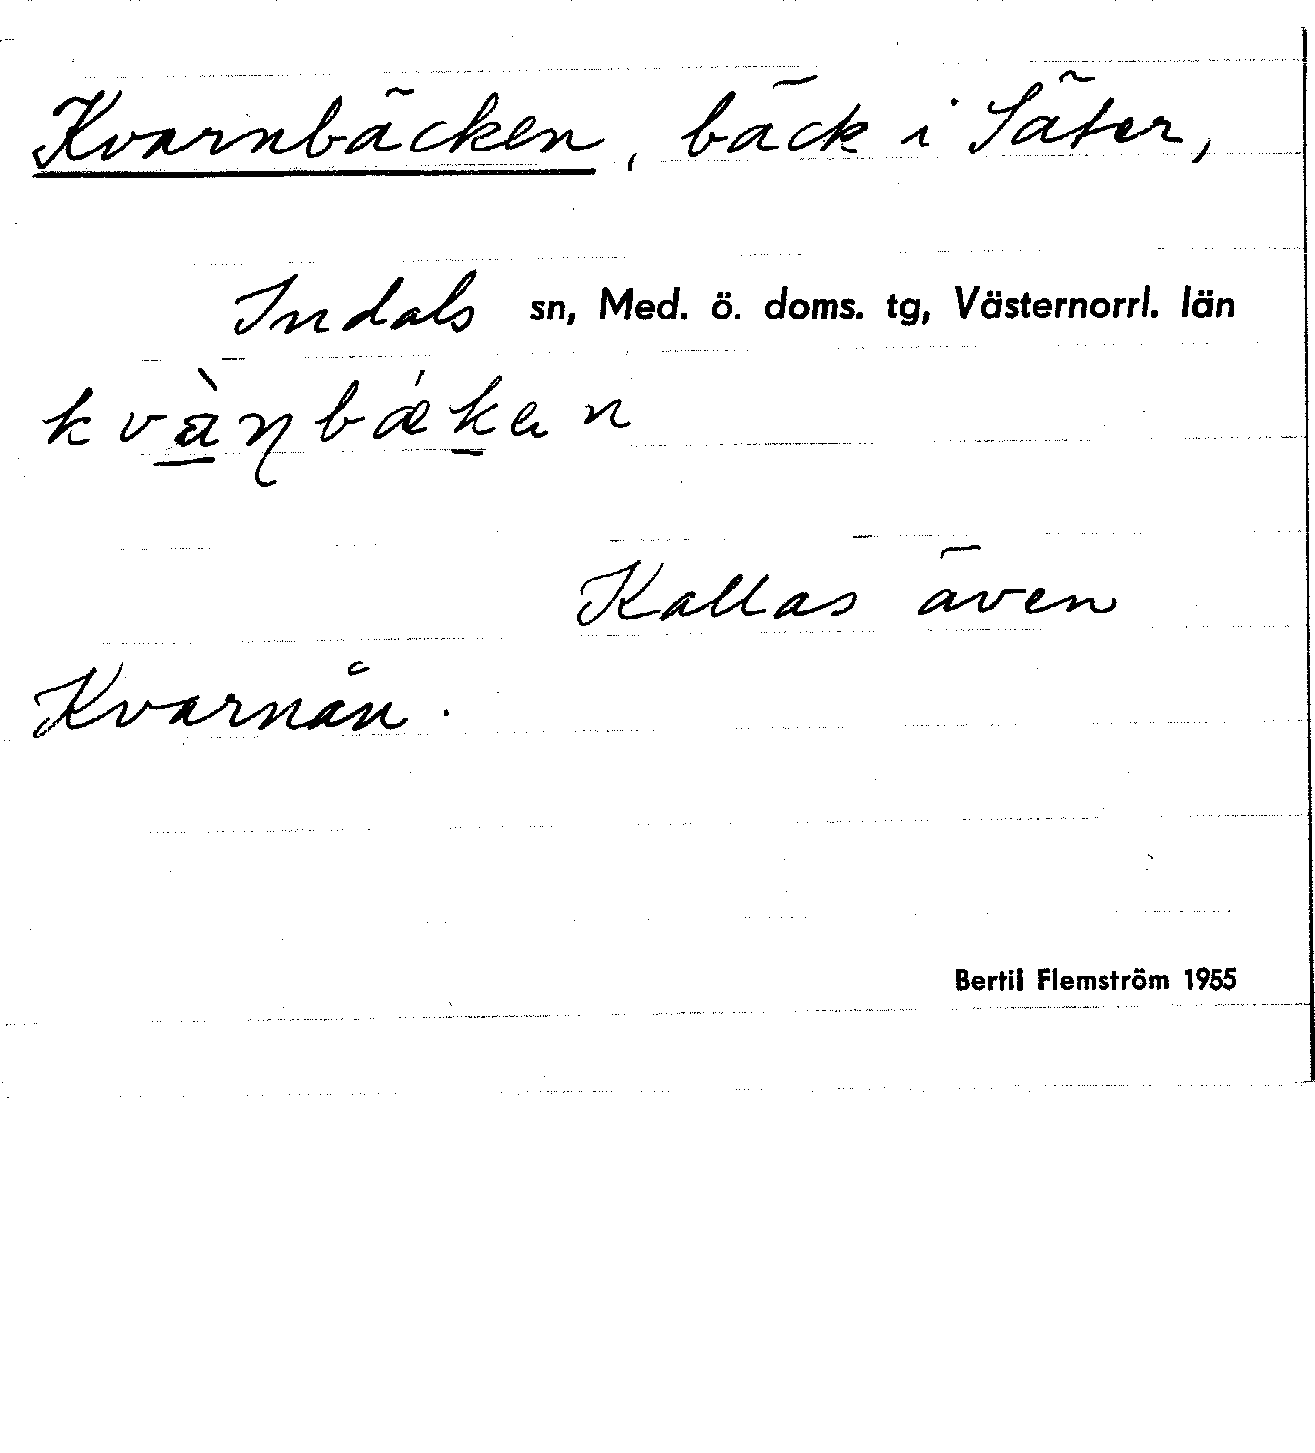 Kvarnbäcken, bäck i Säter,
Indals sn, Med. ö. doms. tg, Västernorrl. län
kvàɳbǽkən
Kallas även
Kvarnån.
Bertil Flemström 1955